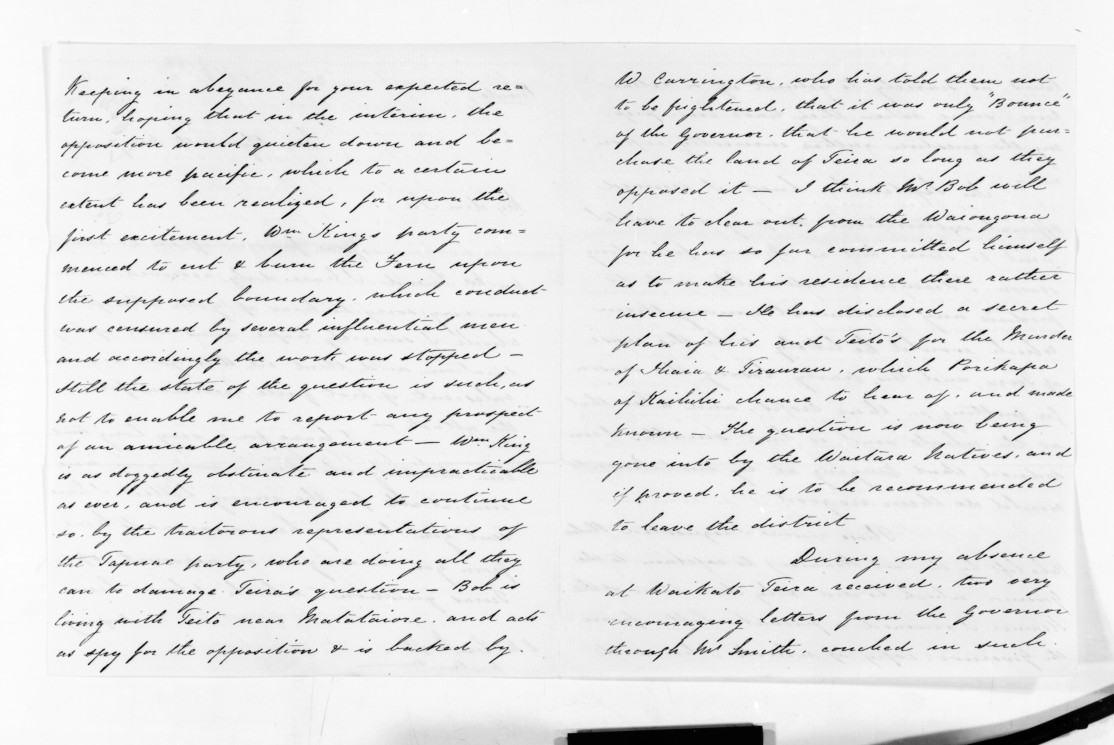 Keeping in abeyance for your expected re=
turn, hoping that in the interim, the
opposition would quieten down and be=
come more pacific, which to a certain
extent has been realized, for upon the
first excitement, Wm King's party com=
menced to cut & burn the Fern upon
the supposed boundary, which conduct
was censured by several influential men
and accordingly the work was stopped –
Still the state of the question is such, as
not to enable me to report any prospect
of an amicable arrangement – Wm King
is as doggedly obstinate and impracticable
as ever, and is encouraged to continue
so, by the traitorous representations of
the Tapuae party, who are doing all they
can to damage Teira's question – Bob is
living with Teito near Matataiore, and acts
as spy for the opposition & is backed by
W Carrington, who has told them not
to be frightened, that it was only "Bounce"
of the Governor, that he would not pur=
chase the land of Teira so long as they
opposed it – I think Mr Bob will
have to clear out, from the Waiongona
for he has so far committed himself
as to make his residence there rather
insecure – He has disclosed a secret
plan of his and Teito's for the Murder
of Ihaia & Tiraurau, which Porikapa
of Kaitihi chance to hear of, and made
known – The question is now being
gone into by the Waitara Natives, and
if proved, he is to be recommended
to leave the district
During my absence
at Waikato Teira received, two very
encouraging letters from the Governor
through Mr Smith, couched in such